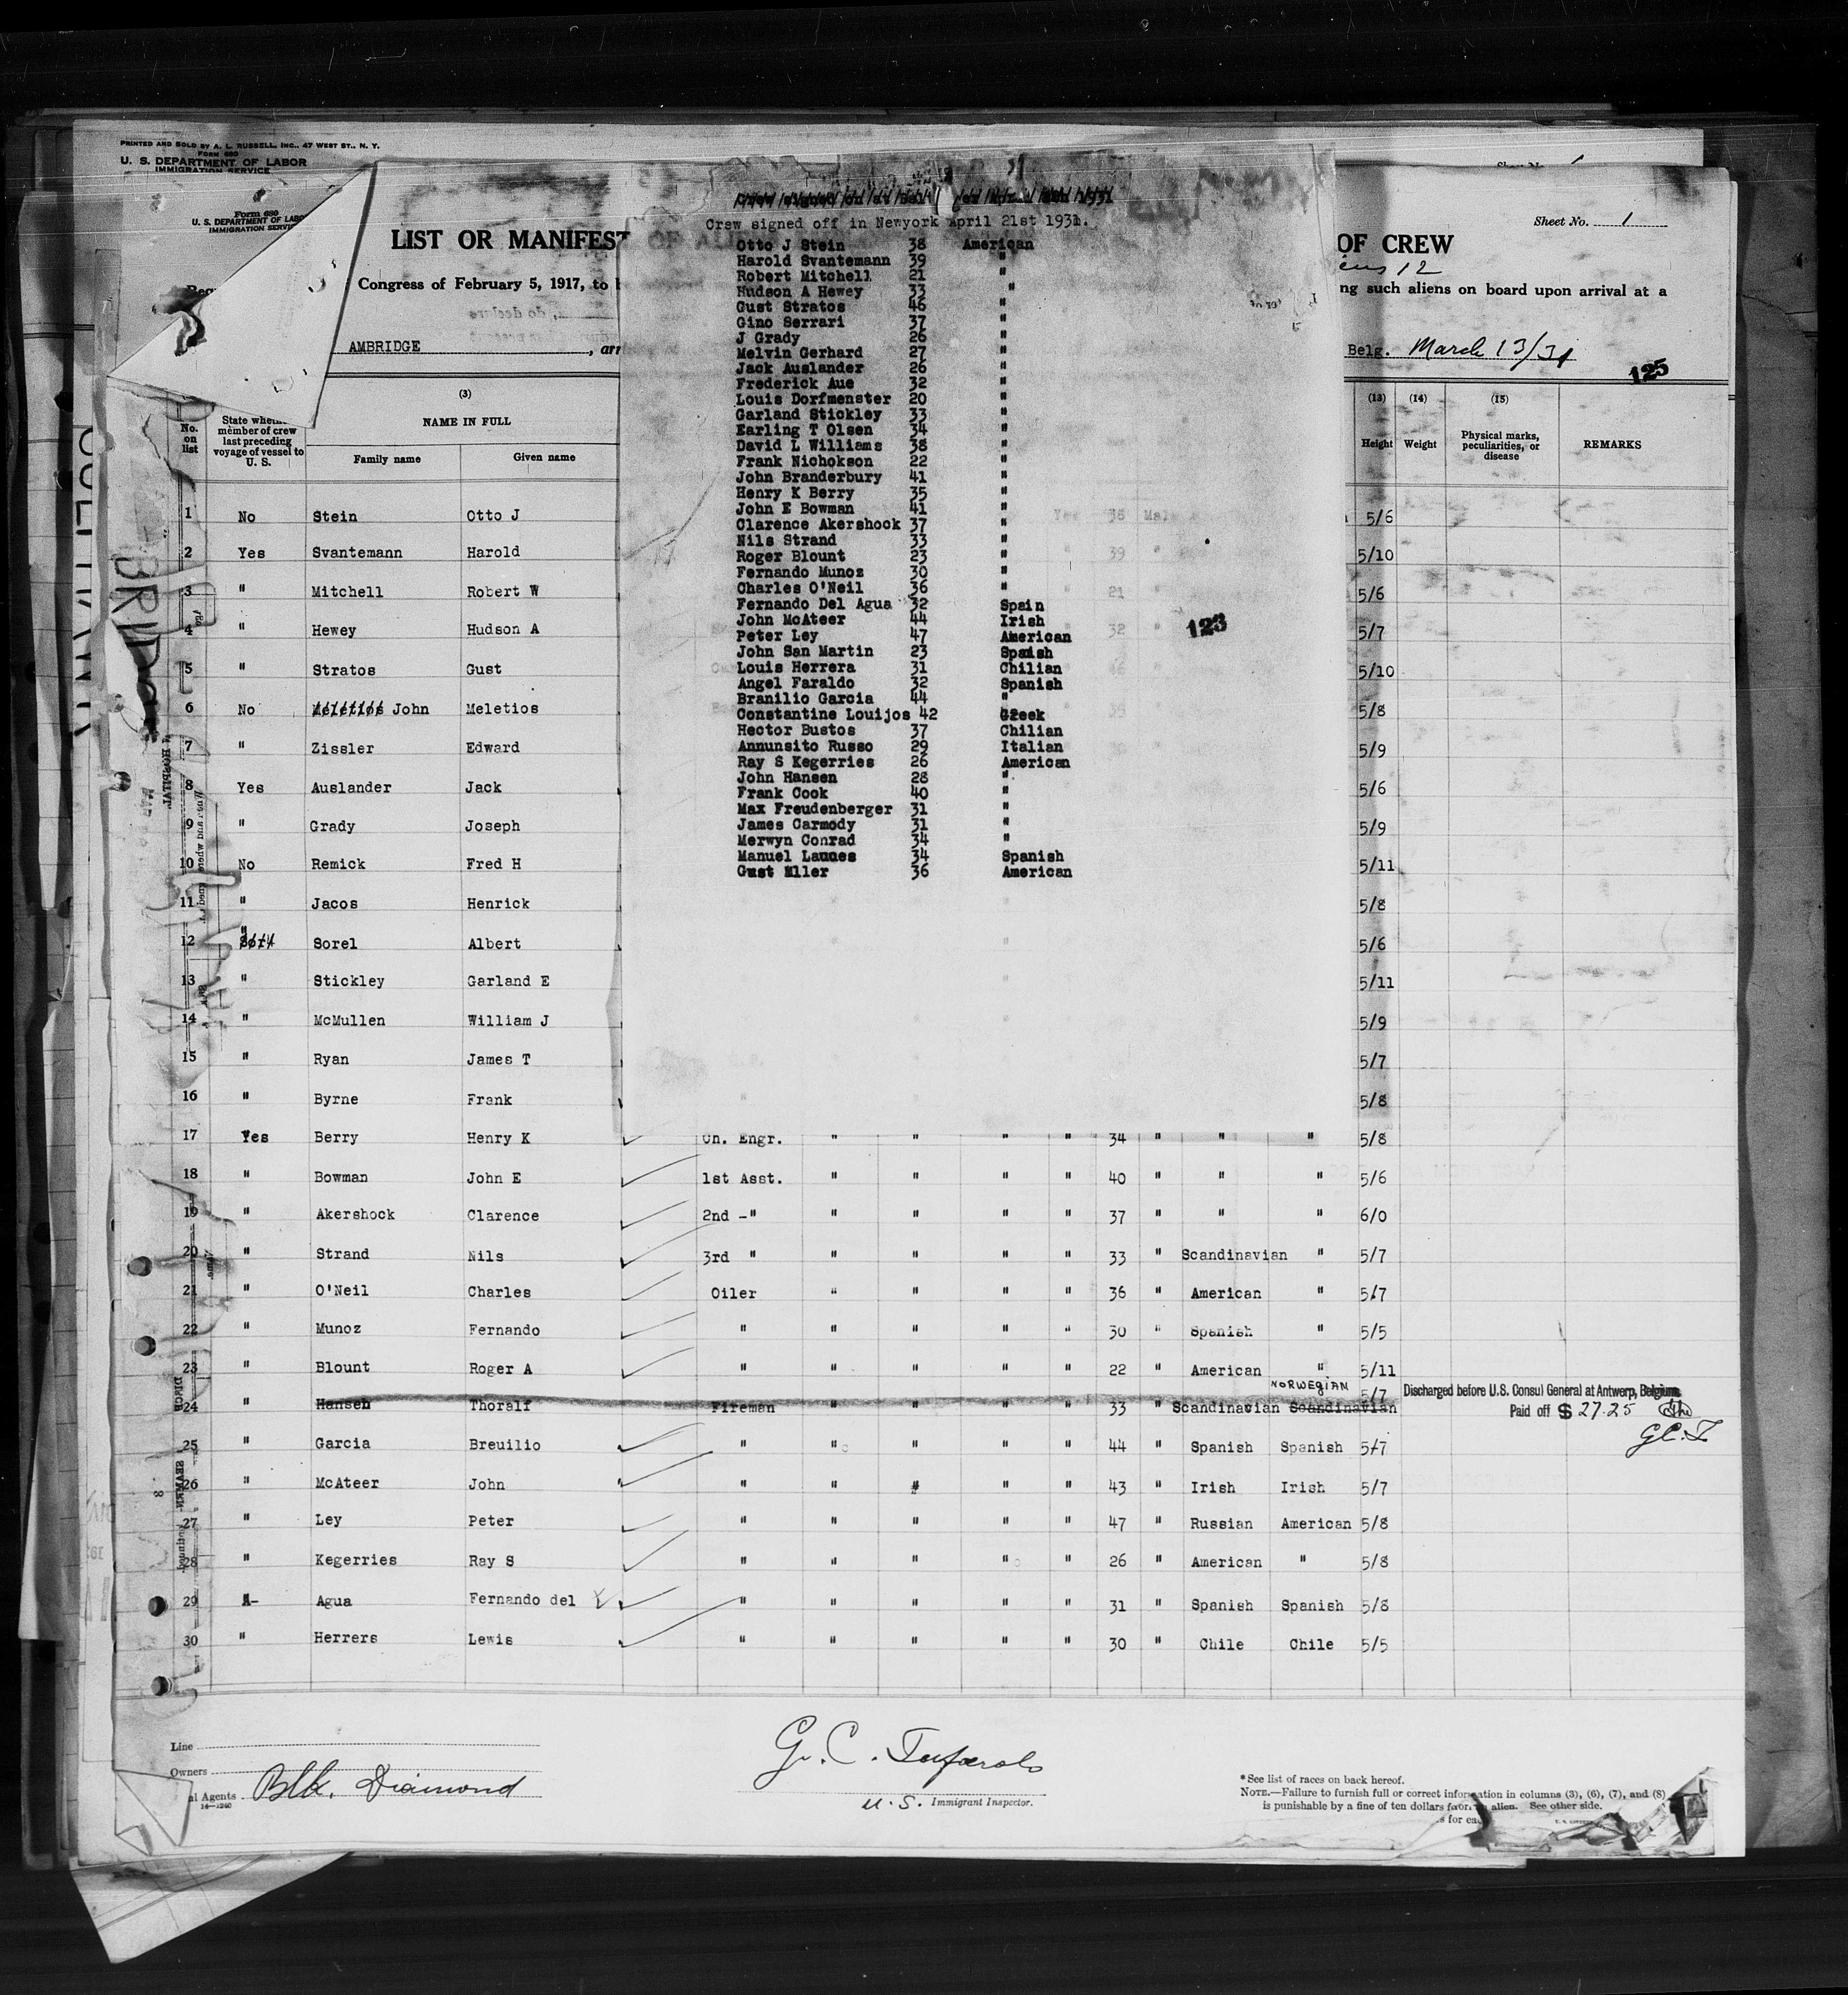 PRINTED AND SOLD BY A. L. RUSSELL, INC., 47 WEST ST., N. Y.
FORM 680
U. S. DEPARTMENT OF LABOR
IMMIGRATION SERVICE
Form 680
U. S. DEPARTMENT OF LABO
IMMIGRATION SERVIC
Sheet No. 1
LIST OR MANIFEST OF CREW
Congress of February 5, 1917, to
12
ng such aliens on board upon arrival at a
AMBRIDGE, arr
Belg. March 13/31
125
Crew signed off in Newyork April 21st 1931.
Otto J Stein 38 American
Harold Svantemann 39 "
Robert Mitchell 21 "
Hudson A Hewey 33 "
Gust Stratos 46 "
Gino Serrari 37 "
J Grady 26 "
Melvin Gerhard 27 "
Jack Auslander 26 "
Frederick Aue 32 "
Louis Dorfmenster 20 "
Garland Stickley 33 "
Earling T Olsen 34 "
David L Williams 38 "
Frank Nichokson 22 "
John Branderbury 41 "
Henry K Berry 35 "
John E Bowman 41 "
Clarence Akershock 37 "
Nils Strand 33 "
Roger Blount 23 "
Fernando Munoz 30 "
Charles O'Neil 36 "
Fernando Del Agua 32 Spain
John McAteer 44 Irish
Peter Ley 47 American
John San Martin 23 Spanish
Louis Herrera 31 Chilian
Angel Faraldo 32 Spanish
Branilio Garcia 44 "
Constantine Louijos 42 Greek
Hector Bustos 37 Chilian
Annunsito Russo 29 Italian
Ray S Kegerries 26 American
John Hansen 28 "
Frank Cook 40 "
Max Freudenberger 31 "
James Carmody 31 "
Merwyn Conrad 34 "
Manuel Launes 34 Spanish
Gust Mller 36 American
123
(3) (13) (14) (15)
No. on list
State whether member of crew last preceding voyage of vessel to U. S.
NAME IN FULL
Family name Given name
Height Weight Physical marks, peculiarities, or disease REMARKS
1 No Stein Otto J 5/6
2 Yes Svantemann Harold 5/10
3 " Mitchell Robert W 5/6
4 " Hewey Hudson A 5/7
5 " Stratos Gust 5/10
6 No Meletios John Meletios 5/8
7 " Zissler Edward 5/9
8 Yes Auslander Jack 5/6
9 " Grady Joseph 5/9
10 No Remick Fred H 5/11
11 " Jacos Henrick 5/8
12 " Sorel Albert 5/6
13 " Stickley Garland E 5/11
14 " McMullen William J 5/9
15 " Ryan James T 5/7
16 " Byrne Frank 5/8
17 Yes Berry Henry K Ch. Engr. " " " " 34 " " " 5/8
18 " Bowman John E 1st Asst. " " " " 40 " " " 5/6
19 " Akershock Clarence 2nd -" " " " " 37 " " " 6/0
20 " Strand Nils 3rd " " " " " 33 " Scandinavian " 5/7
21 " O'Neil Charles Oiler " " " " 36 " American " 5/7
22 " Munoz Fernando " " " " " 30 " Spanish " 5/5
23 " Blount Roger A " " " " " 22 " American " 5/11
24 " Hansen Thoralf Fireman " " " " 33 " Scandinavian Scandinavian NORWEGIAN 5/7 Discharged before U.S. Consul General at Antwerp, Belgium.
Paid off $ 27.25
25 " Garcia Breuilio " " " " " 44 " Spanish Spanish 5/7
26 " McAteer John " " " " " 43 " Irish Irish 5/7
27 " Ley Peter " " " " " 47 " Russian American 5/8
28 " Kegerries Ray S " " " " " 26 " American " 5/8
29 Agua Fernando del " " " " " 31 " Spanish Spanish 5/8
30 " Herrers Lewis " " " " " 30 " Chile Chile 5/5
Line
Owners
al Agents Blk. Diamond
14—1240
G. C.
U. S. Immigrant Inspector.
*See list of races on back hereof.
NOTE.—Failure to furnish full or correct information in columns (3), (6), (7), and (8)
is punishable by a fine of ten dollars for alien. See other side.
s for eac